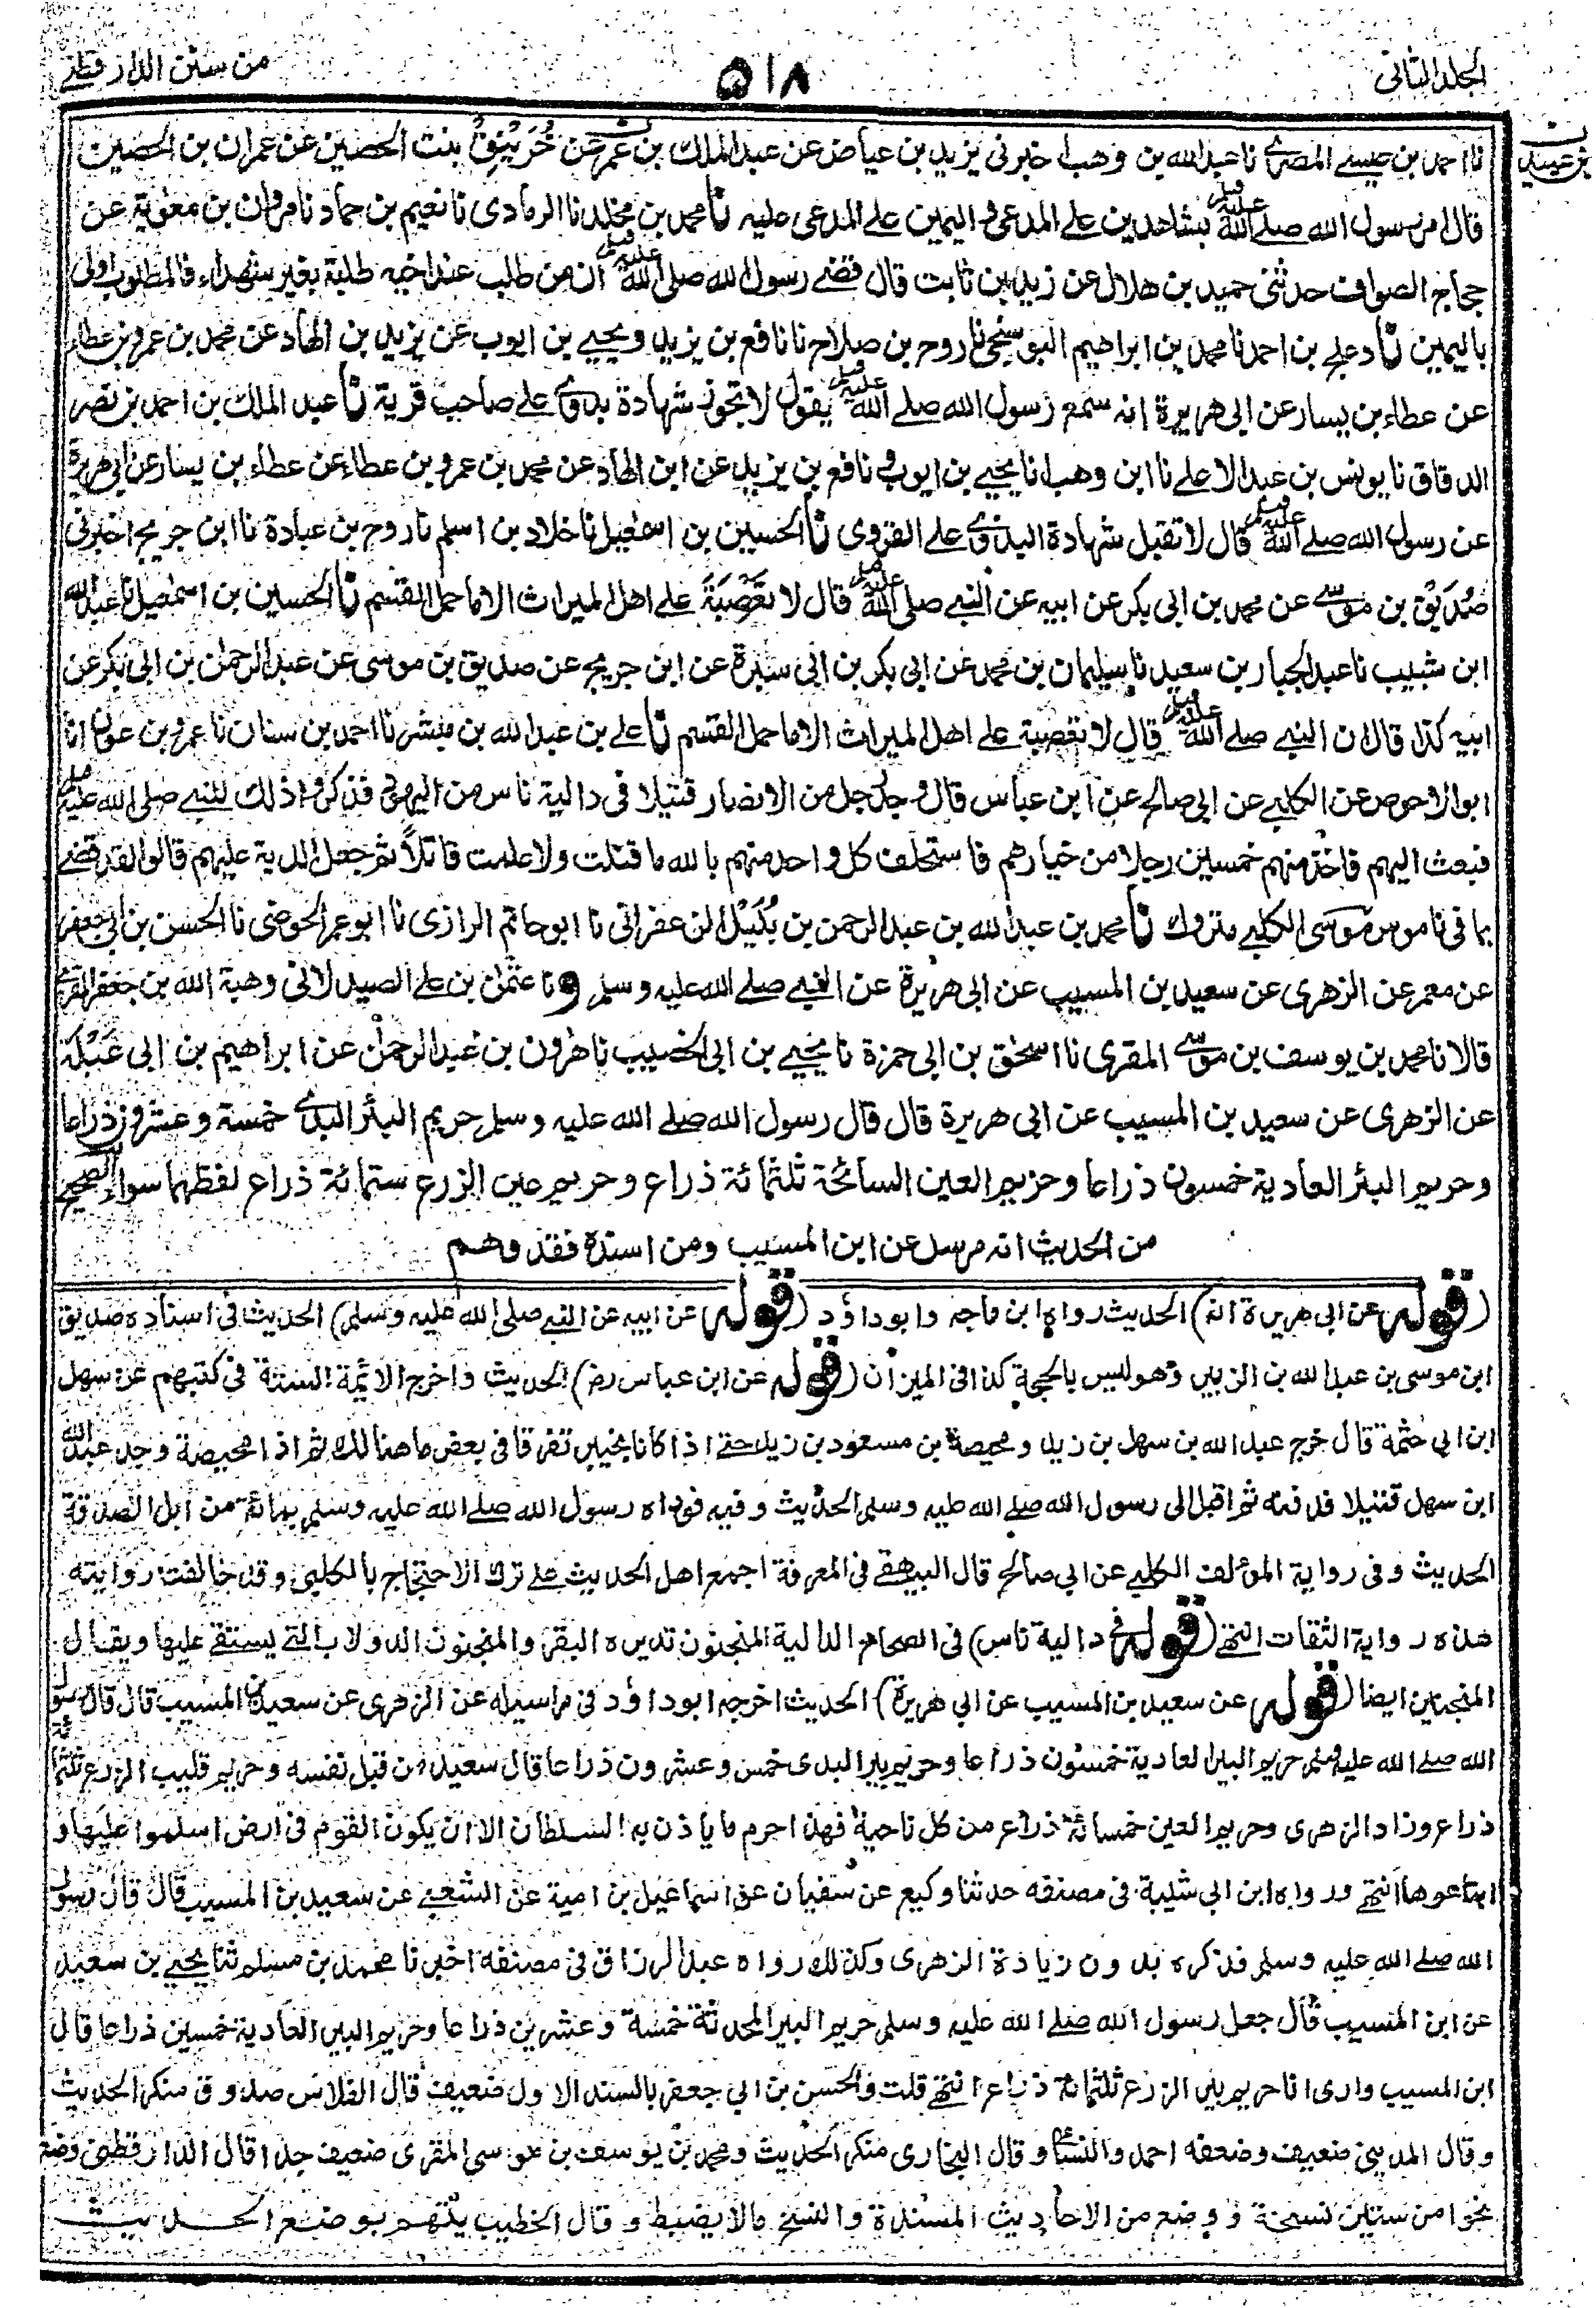 الجلد الثانی
۵۱۸
من سنن الدار قطنے
نا احمد بن عیسے المصرے نا عبد الله بن وهب اخبرنی یزید بن عیاض عن عبد الملك بن عمر عن خُرَیْنِقُ بنت الحصین عن عمران بن الحصین
بن عبید
قال امر رسول الله صلے الله علیہ وسلم بشاهدین علے المدعی والیمین علے المدعی علیه نا محمد بن مخلد نا الرمادی نا نعیم بن حماد نا مروان بن معویة عن
حجاج الصواف حدثنی حمید بن هلال عن زید بن ثابت قال قضے رسول الله صلی الله علیہ وسلم ان من طلب عند اخیه طلبة بغیر شهداء فالمطلوب اولی
بالیمین نا دعلج بن احمد نا محمد بن ابراهیم البوسنجی نا روح بن صلاح نا نافع بن یزید ویحیے بن ایوب عن یزید بن الهاد عن محمد بن عمرو بن عطاء
عن عطاء بن یسار عن ابی هریرة انه سمع رسول الله صلے الله علیہ وسلم یقول لا تجوز شهادة بدوے علے صاحب قریة نا عبد الملك بن احمد بن نصر
الدقاق نا یونس بن عبد الاعلے نا ابن وهب انا یحیے بن ایوب و نافع بن یزید عن ابن الهاد عن محمد بن عمرو بن عطاء عن عطاء بن یسار عن ابی هریرة
عن رسول الله صلے الله علیہ وسلم قال لا تقبل شهادة البدوے علے القروی نا الحسین بن اسمعیل نا خلاد بن اسلم نا روح بن عبادة نا ابن جریج اخبرنی
صُدَیْق بن موسے عن محمد بن ابی بکر عن ابیه عن النبے صلی الله علیہ وسلم قال لا تعْصِبَةَ علے اهل المیراث الا ما حمل القسم نا الحسین بن اسمعیل نا عبد الله
ابن شبیب نا عبد الجبار بن سعید نا سلیمان بن محمد عن ابی بکر بن ابی سبرة عن ابن جریج عن صدیق بن موسی عن عبد الرحمن بن ابی بکر عن
ابیه کذا قال ان النبے صلے الله علیہ وسلم قال لا تعصبة علے اهل المیراث الا ما حمل القسم نا علے بن عبد الله بن مبشر نا احمد بن سنان نا عمرو بن عون انا
ابو الاحوص عن الکلبے عن ابی صالح عن ابن عباس قال وجد رجل من الانصار قتیلا فی دالیة ناس من الیهود فذکروا ذلك للنبے صلی الله علیہ وسلم
فبعث الیهم فاخذ منهم خمسین رجلا من خیارهم فاستحلف کل واحد منهم بالله ما قتلت ولا علمت قاتلاً ثم جعل الدیة علیهم قالوا لقد قضے
بما فی ناموس موسی الکلبے متروك نا محمد بن عبد الله بن عبد الرحمن بن بُکَیْل الزعفرانی نا ابو حاتم الرازی نا ابو عمر الحوضی نا الحسن بن ابی جعفر
عن معمر عن الزهری عن سعید بن المسیب عن ابی هریرة عن النبے صلے الله علیه وسلم ونا عثمن بن علے الصیدلانی وهبة الله بن جعفر المقرے
قالا نا محمد بن یوسف بن موسے المقری نا اسحق بن ابی حمزة نا یحیے بن ابی الخصیب نا هرون بن عبد الرحمن عن ابراهیم بن ابی عَبْلَة
عن الزهری عن سعید بن المسیب عن ابی هریرة قال قال رسول الله صلے الله علیه وسلم حریم البئر البدے خمسة وعشرون ذراعا
وحریم البئر العادیة خمسون ذراعا وحریم العین السائحة ثلثمائة ذراع وحریم عین الزرع ستمائة ذراع لفظهما سواء الصحیح
من الحدیث انه مرسل عن ابن المسیب ومن اسنده فقد وهم
(قوله عن ابی هریرة انه) الحدیث رواه ابن ماجه وابو داؤد (قوله عن ابیه عن النبے صلی الله علیه وسلم) الحدیث فی اسناده صدیق
ابن موسی بن عبد الله بن الزبیر وهو لیس بالحجة کذا فی المیزان (قوله عن ابن عباس رض) الحدیث واخرج الائمة الستة فی کتبهم عن سهل
ابن ابی حثمة قال خرج عبد الله بن سهل بن زید ومحیصة بن مسعود بن زید حتے اذا کانا بخیبر تفرقا فی بعض ما هنالك ثم اذا محیصة وجد عبد الله
ابن سهل قتیلا فدفنه ثم اقبل الی رسول الله صلے الله علیه وسلم الحدیث وفیه فوداه رسول الله صلے الله علیه وسلم بمائة من ابل الصدقة
الحدیث وفی روایة المؤلف الکلبے عن ابی صالح قال البیهقے فی المعرفة اجمع اهل الحدیث علے ترك الاحتجاج بالکلبی وقد خالفت روایته
هذه روایة الثقات انتهے (قوله فی دالیة ناس) فی الصحاح الدالیة المنجنون تدیره البقر والمنجنون الدولاب التے یستقے علیها ویقال
المنجنین ایضا (قوله عن سعید بن المسیب عن ابی هریرة) الحدیث اخرجه ابو داؤد فی مراسیله عن الزهری عن سعید بن المسیب قال قال رسول
الله صلے الله علیه وسلم حریم البیر العادیة خمسون ذراعا وحریم بیر البدی خمس وعشرون ذراعا قال سعید من قبل نفسه وحریم قلیب الزرع ثلثمائة
ذراع وزاد الزهری وحریم العین خمسمائة ذراع من کل ناحیة فهذا حرم ما یاذن به السلطان الا ان یکون القوم فی ارض اسلموا علیها و
ابتاعوها انتهے ورواه ابن ابی شیبة فی مصنفه حدثنا وکیع عن سفیان عن اسماعیل بن امیة عن الشعبے عن سعید بن المسیب قال قال رسول
الله صلے الله علیه وسلم فذکره بدون زیادة الزهری وکذلك رواه عبد الرزاق فی مصنفه اخبرنا محمد بن مسلم ثنا یحیے بن سعید
عن ابن المسیب قال جعل رسول الله صلے الله علیه وسلم حریم البیر المحدثة خمسة وعشرین ذراعا وحریم البیر العادیة خمسین ذراعا قال
ابن المسیب واری انا حریم بیر الزرع ثلثمائة ذراع انتهے قلت والحسن بن ابی جعفر بالسند الاول ضعیف قال الفلاس صدوق منکر الحدیث
وقال المدینی ضعیف وضعفه احمد والنسائی وقال البخاری منکر الحدیث ومحمد بن یوسف بن موسی المقری ضعیف جدا قال الدارقطنی وضع
نحوا من ستین نسخة ووضع من الاحادیث المسندة والنسخ مالا یضبط وقال الخطیب یتهم بوضع الحدیث